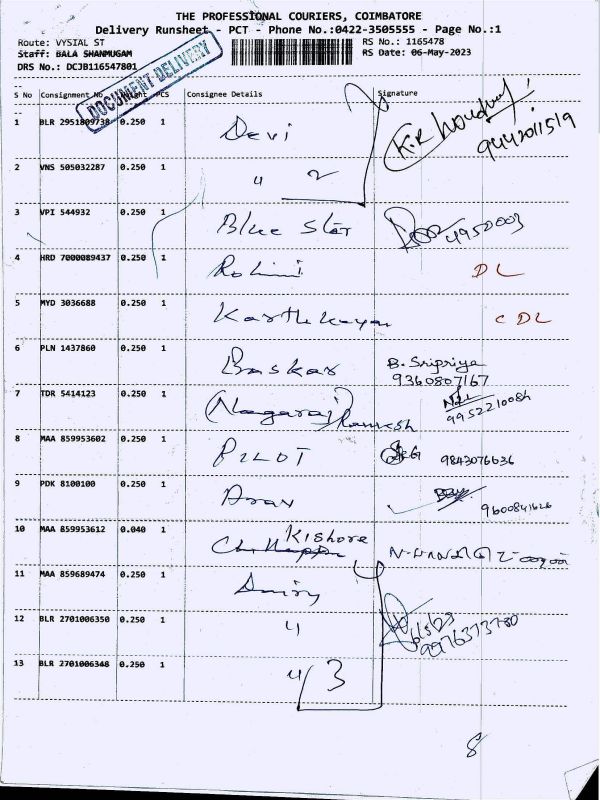 THE PROFESSIONAL COURIERS, COIMBATORE
Delivery Runsheet - PCT - Phone No.:0422-3505555 - Page No.:1
Route: VYSIAL ST RS No.: 1165478
Staff: BALA SHANMUGAM RS Date: 06-May-2023
DRS No.: DCJB116547801
DOCUMENT DELIVERY
S No Consignment No Weight PCS Consignee Details Signature
1 BLR 2951809738 0.250 1 Devi K.R 9442011519
2 VNS 505032287 0.250 1 " 2
3 VPI 544932 0.250 1 Blue Star 4952003
4 HRD 7000089437 0.250 1 Rohini DL
5 MYD 3036688 0.250 1 Karthikayan CDL
6 PLN 1437860 0.250 1 Baskar B. Sripriya
9360807167
7 TDR 5414123 0.250 1 (Nagaraj) Ramesh 9952210084
8 MAA 859953602 0.250 1 PILOT 9843076636
9 PDK 8100100 0.250 1 9600841626
10 MAA 859953612 0.040 1 Kishore
11 MAA 859689474 0.250 1
12 BLR 2701006350 0.250 1 " 9976373780
13 BLR 2701006348 0.250 1 " 3
8